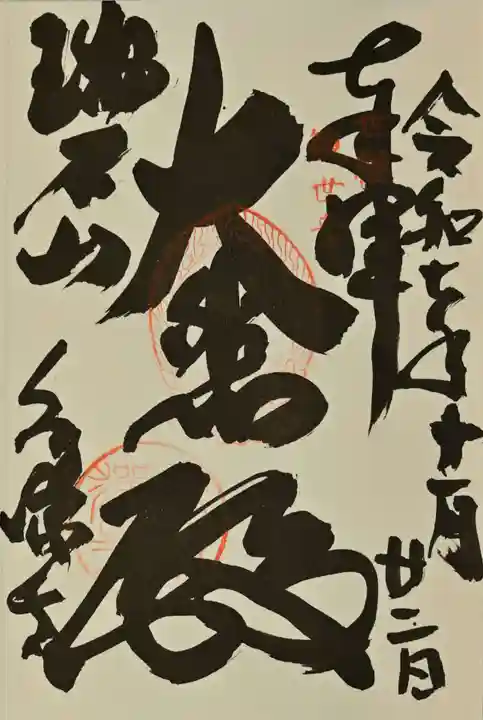 令和七年十一月廿二日
奉拝
大悲殿
瑞石山
永源寺